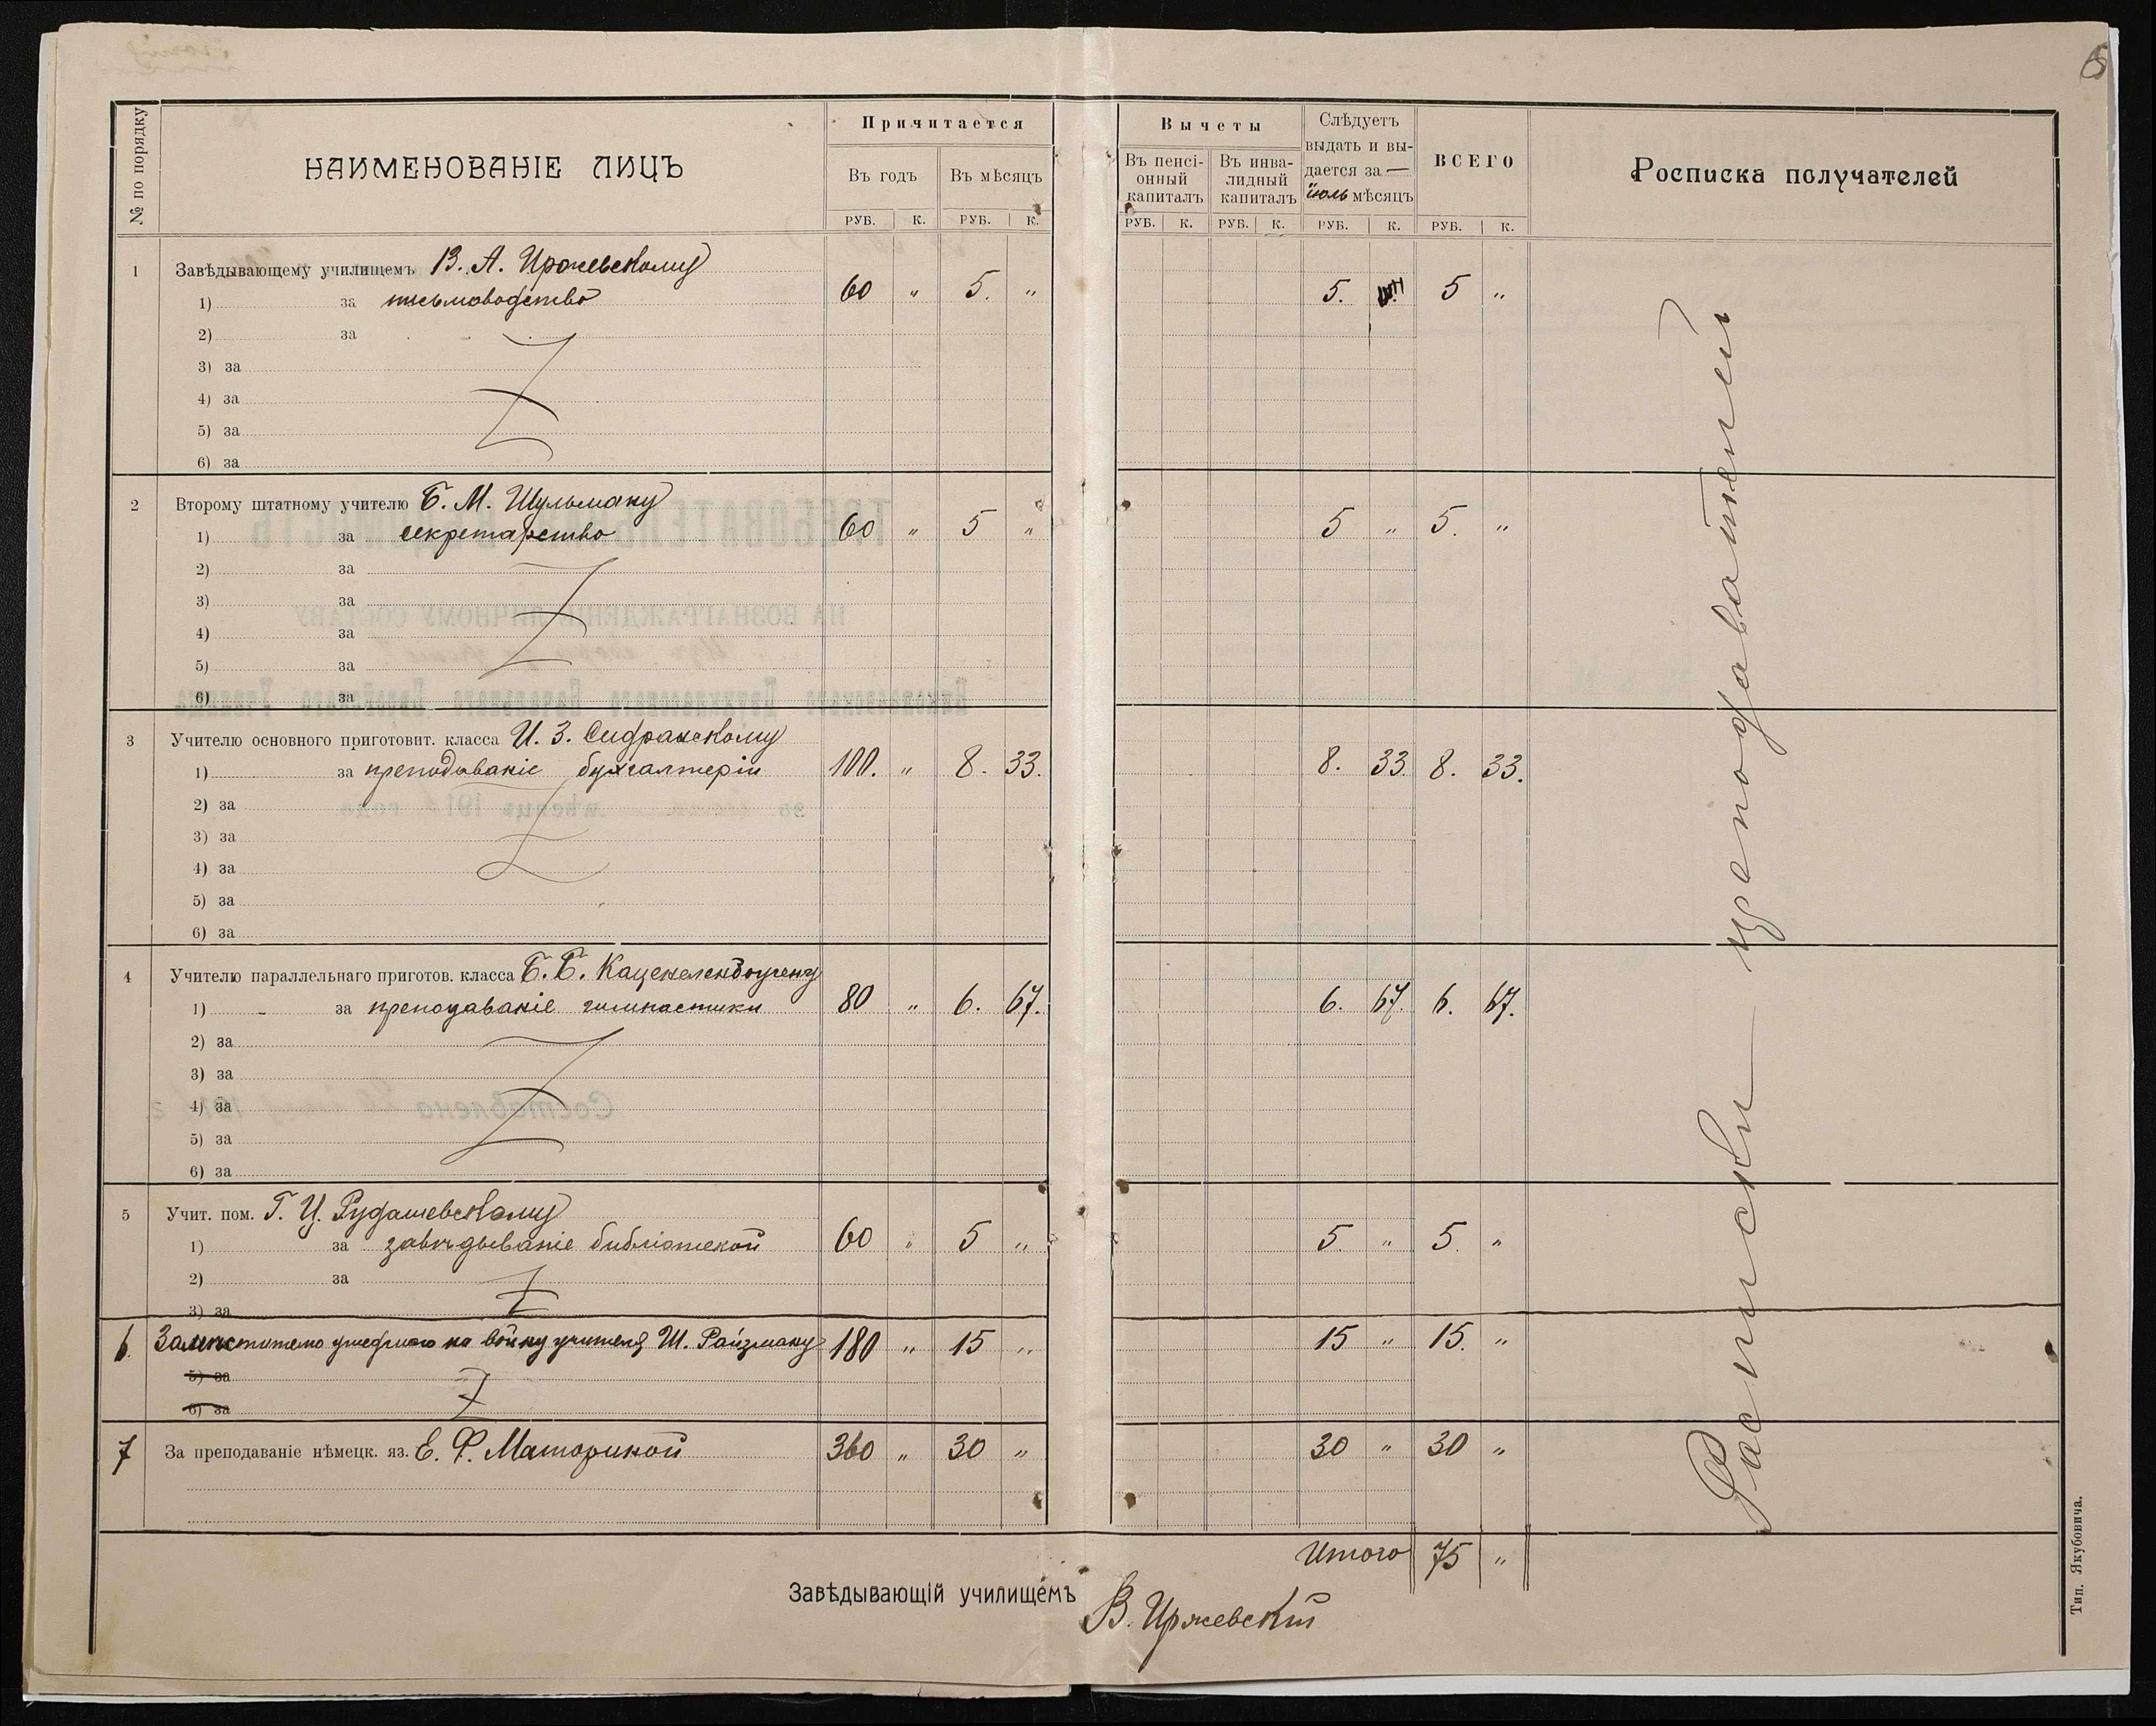 6
№ по порядку
НАИМЕНОВАНІЕ ЛИЦЪ
Причитается
Въ годъ Въ мѣсяцъ
РУБ. К. РУБ. К.
Вычеты
Въ пенсіонный капиталъ
Въ инвалидный капиталъ
РУБ. К. РУБ. К.
Слѣдуетъ
выдать и вы-
дается за —
іюль мѣсяцъ
РУБ. К.
ВСЕГО
РУБ. К.
Росписка получателей
1 Завѣдывающему училищемъ В. А. Иржевскому
1) за письмоводство 60 " 5. " 5. 5 "
2) за
3) за
4) за
5) за
6) за
2 Второму штатному учителю Б. М. Шульману
1) за секретарство 60 " 5 " 5 " 5. "
2) за
3) за
4) за
5) за
6) за
3 Учителю основного приготовит. класса И. З.
1) за преподаваніе бухгалтеріи 100. " 8. 33. 8. 33. 8. 33.
2) за
3) за
4) за
5) за
6) за
4 Учителю параллельнаго приготов. класса Б. Б. Каценеленбогену
1) за преподаваніе гимнастики 80 " 6. 67. 6. 67. 6. 67.
2) за
3) за
4) за
5) за
6) за
5 Учит. пом. Г. Ц. Рудашевскому
1) за завѣдываніе библіотекой 60 " 5 " 5. " 5. "
2) за
3) за
6. на войну учителя Ш. Райзману 180 " 15 " 15 " 15. "
5) за
6) за
7 За преподаваніе нѣмецк. яз. Е. Ф. 360 " 30 " 30 " 30 "
Итого 75 "
Завѣдывающій училищемъ
В. Иржевскій
Расписки преподавателей
Тип. Якубовича.